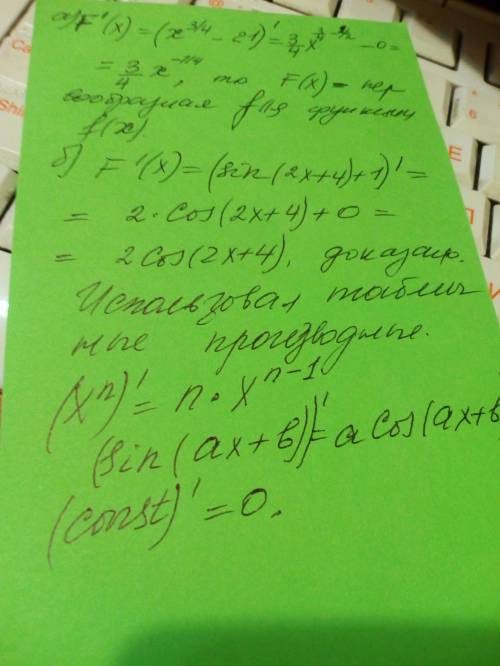 а) F'(x) = (x^{3/4} - 21)' = 3/4 x - 0 =
= 3/4 x^{-1/4}, то F(x) - пер
вообразная для функции
f(x).
б) F'(x) = (sin(2x+4)+1)' =
= 2 · cos(2x+4) + 0 =
= 2cos(2x+4),
Использовал таблич
ные производные.
(x^n)' = n · x^{n-1}
(sin(ax+b))' = a cos(ax+b
(const)' = 0.